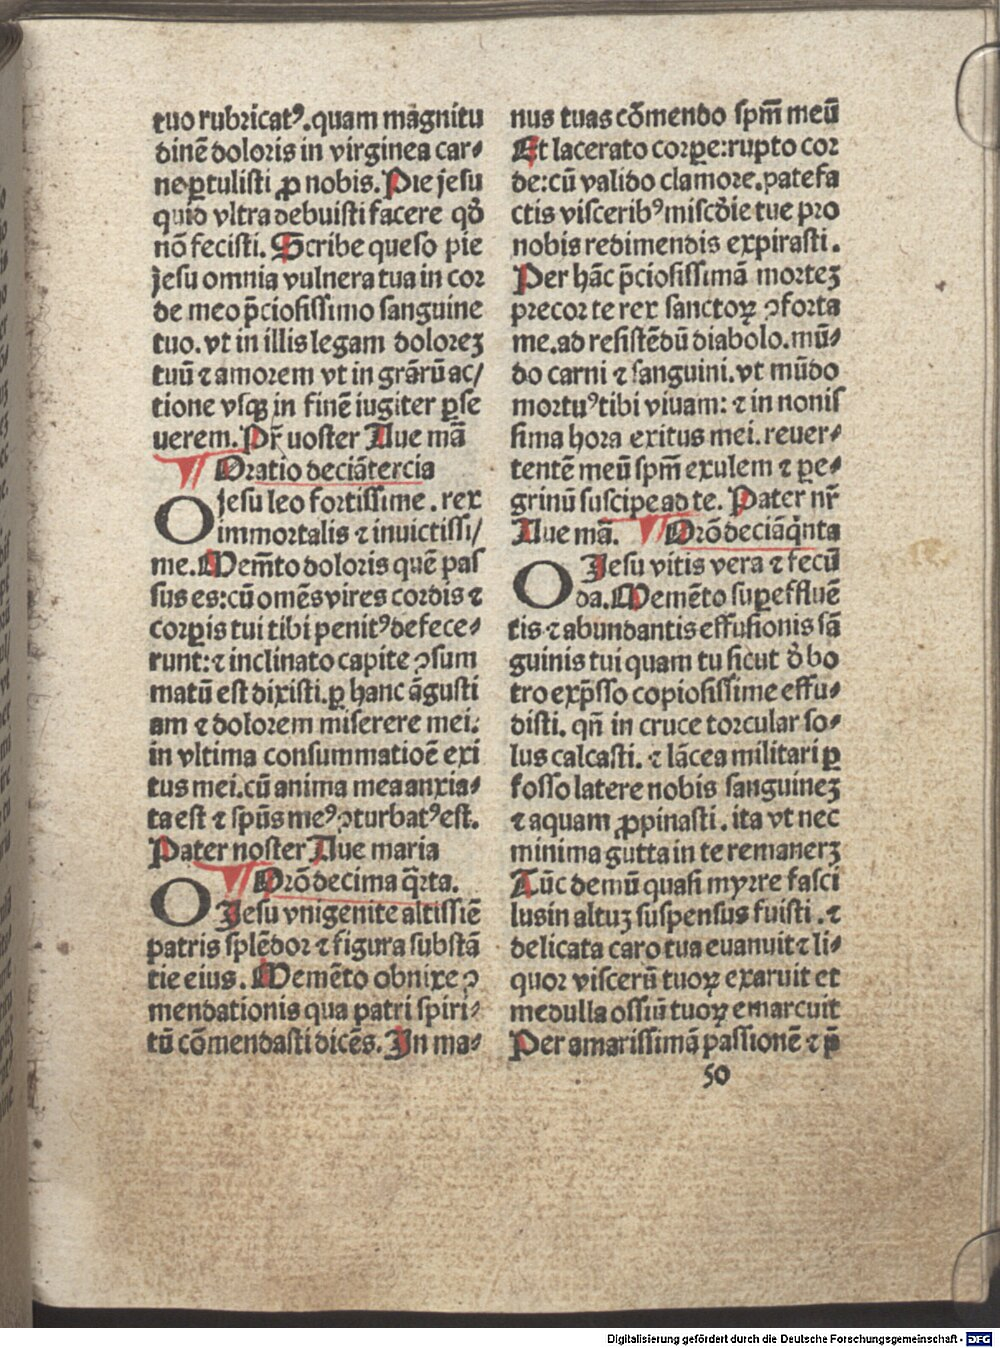 tuo rubricatꝰ. quam magnitu
dinē doloris in virginea car⸗
ne ꝑtulisti ꝓ nobis. Pie jesu
quid vltra debuisti facere qd̄
nō fecisti. Scribe queso pie
jesu omnia vulnera tua in cor
de meo p̄ciosissimo sanguine
tuo. vt in illis legam dolorez
tuū ⁊ amorem vt in grārū ac/
tione vsqꝫ in finē iugiter ꝑse
uerem. Pr̄ uoster Aue mā
¶ Oratio deciātercia
O jesu leo fortissime. rex
immortalis ⁊ inuictissi/
me. Mem̄to doloris quē pas
sus es: cū omēs vires cordis ⁊
corꝑis tui tibi penitꝰ defece⸗
runt: ⁊ inclinato capite ꝯsum
matū est dixisti. ꝑ hanc āgusti
am ⁊ dolorem miserere mei.
in vltima consummatioē exi
tus mei. cū anima mea anxia⸗
ta est ⁊ spūs meꝰ ꝯturbatꝰ est.
Pater noster Aue maria
¶ Orō decima q̄rta.
O Jesu vnigenite altissiē
patris splēdor ⁊ figura substā
tie eius. Memēto obnixe ꝯ
mendationis qua patri spiri⸗
tū cōmendasti dicēs. In ma⸗
nus tuas cōmendo spm̄ meū
Et lacerato corꝑe: rupto cor
de: cū valido clamore. patefa
ctis visceribꝰ miscd̄ie tue pro
nobis redimendis expirasti.
Per hāc p̄ciosissimā mortez
precor te rex sanctoꝝ ꝯforta
me. ad resistēdū diabolo. mū⸗
do carni ⁊ sanguini. vt mūdo
mortuꝰ tibi viuam: ⁊ in nouis
sima hora exitus mei. reuer⸗
tentē meū spm̄ exulem ⁊ ꝑe⸗
grinū suscipe ad te. Pater nr̄
Aue mā. ¶ Orō deciāq̄nta
O Jesu vitis vera ⁊ fecū
da. Memēto suꝑeffluē
tis ⁊ abundantis effusionis sā
guinis tui quam tu sicut d̄ bo
tro exp̄sso copiosissime effu⸗
disti. qn̄ in cruce torcular so⸗
lus calcasti. ⁊ lācea militari ꝑ
fosso latere nobis sanguinez
⁊ aquam ꝓpinasti. ita vt nec
minima gutta in te remanerꝫ
Tūc demū quasi myrre fasci
lus in altuꝫ suspensus fuisti. ⁊
delicata caro tua euanuit ⁊ li⸗
quor viscerū tuoꝝ exaruit et
medulla ossiū tuoꝝ emarcuit
Per amarissimā passionē ⁊ p̄
50
Digitalisierung gefördert durch die Deutsche Forschungsgemeinschaft - DFG